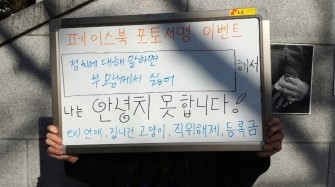 페이스북 포토서명 이벤트
정치에 대해 말하면
부모님께서 싫어 해서
나는 안녕치 못합니다!
ex) 연애, 집나간 고양이, 직위해제, 등록금